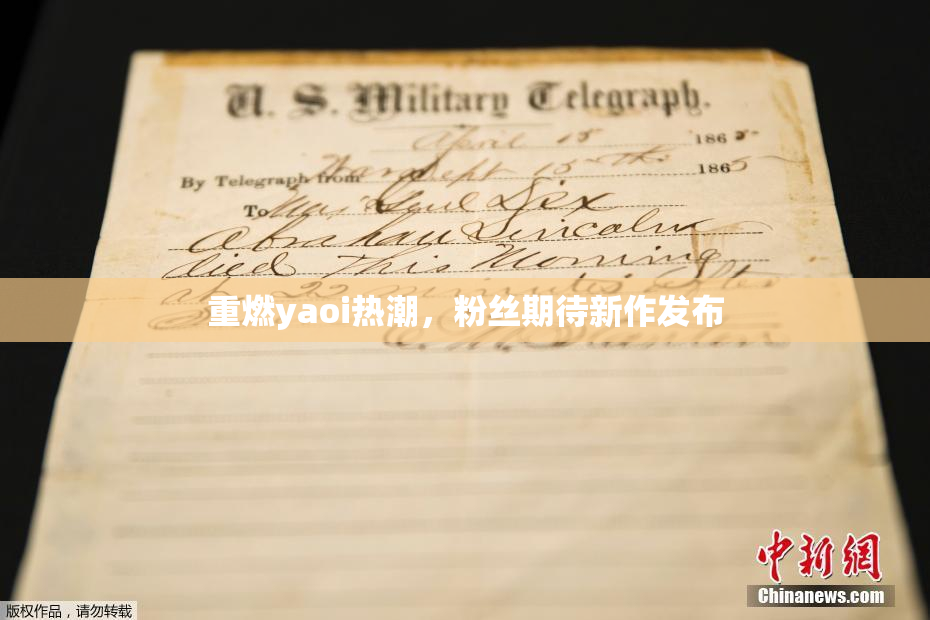 U. S. Military Telegraph.
April 15 1865
By Telegraph from War Dept 15th 1865
To Maj Genl Dix
Abraham Lincoln
died This Morning
at 22 minutes after
重燃yaoi热潮，粉丝期待新作发布
E. M. Stanton
中新网
Chinanews.com
版权作品，请勿转载